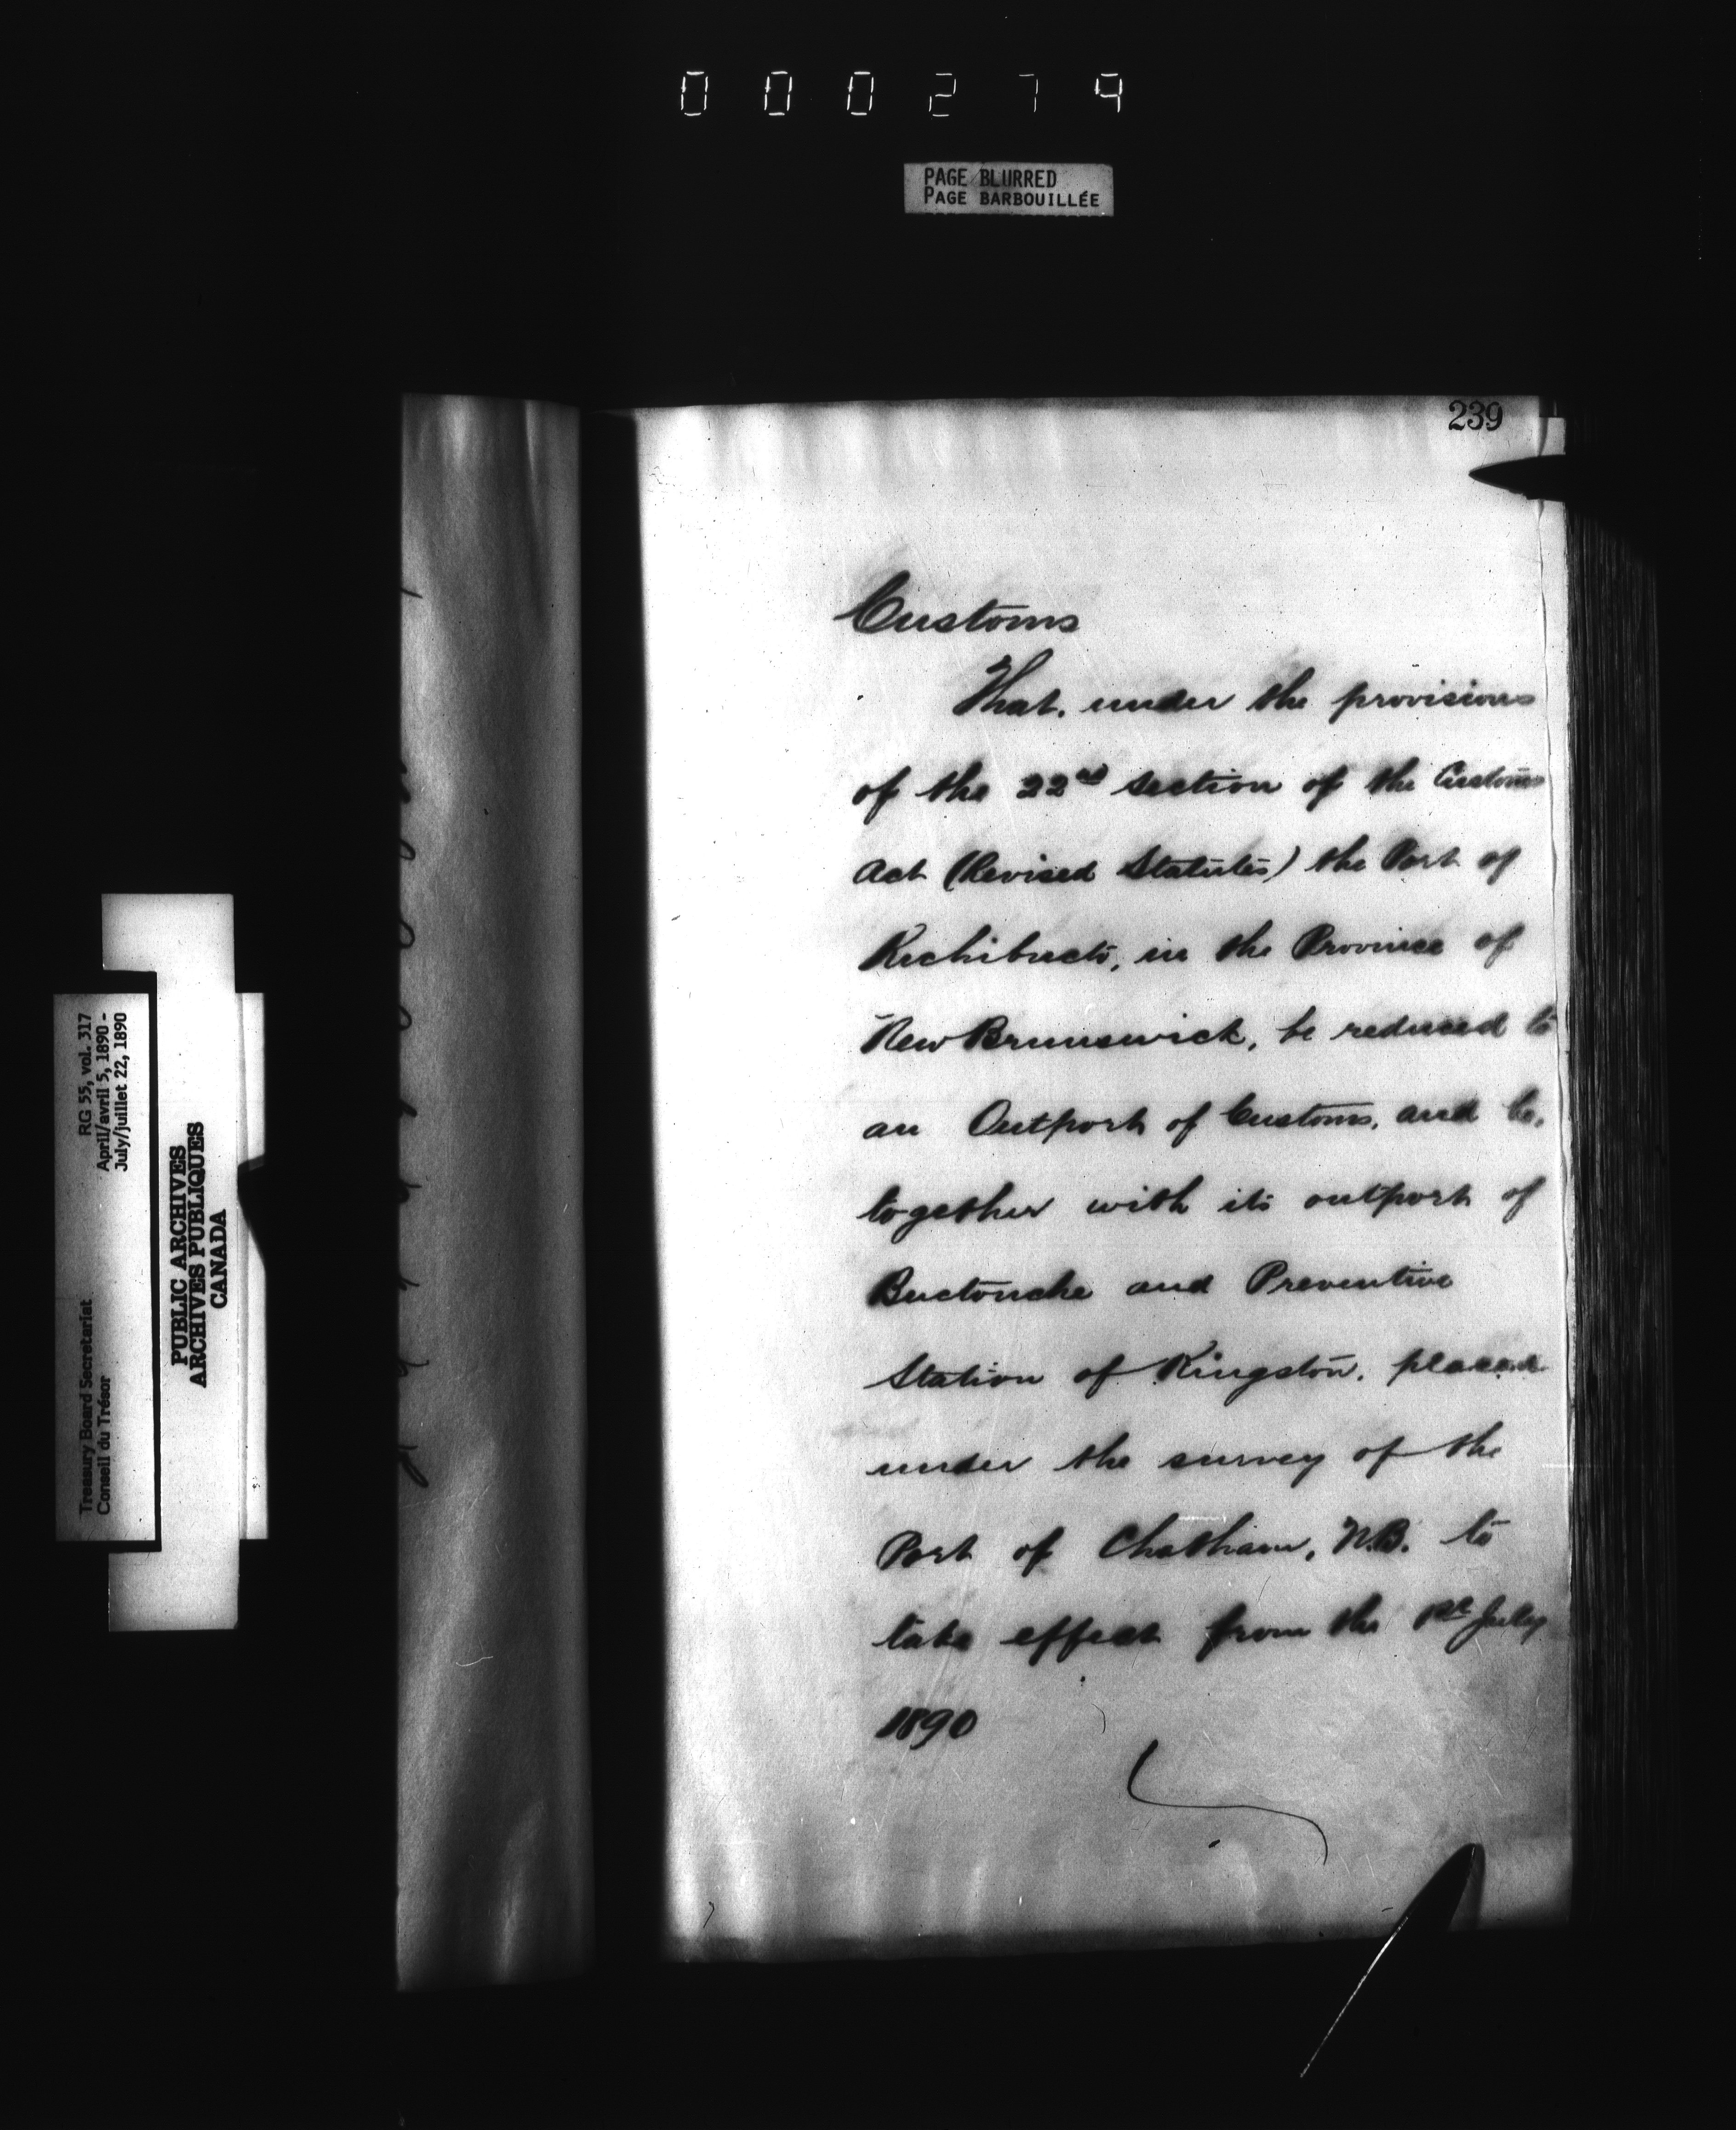 000279
PAGE BLURRED
PAGE BARBOUILLÉE
239
Customs
That, under the provisions
of the 22nd section of the Customs
Act (Revised Statutes) the Port of
Richibucto, in the Province of
New Brunswick, be reduced to
an Outport of Customs, and be,
together with its outport of
Buctouche and Preventive
Station of Kingston, placed
under the survey of the
Port of Chatham, N.B. to
take effect from the 1st July
1890
RG 55, vol. 317
April/avril 5, 1890 -
July/juillet 22, 1890
Treasury Board Secretariat
Conseil du Trésor
PUBLIC ARCHIVES
ARCHIVES PUBLIQUES
CANADA